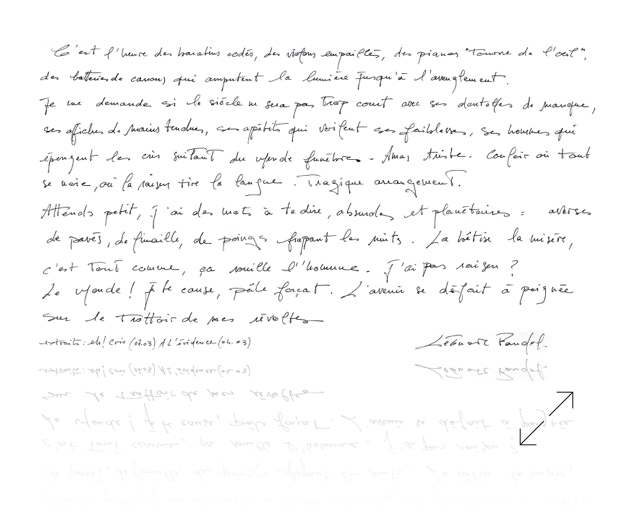 C'est l'heure des baratins codés, des violons empaillés, des pianos "Tourne de l'oeil",
des batteries de canons qui amputent la lumière jusqu'à l'aveuglement.
Je me demande si le siècle ne sera pas trop court avec ses dentelles de manque,
ses affiches de mains tendues, ses appétits qui voilent ses faiblesses, ses hommes qui
épongent les cris suintant du monde funèbre. Amas triste. Couloir où tout
se noie, où la raison tire la langue. Tragique arrangement.
Attends petit, j'ai des mots à te dire, absurdes et planétaires : averses
de pavés, de finaille, de poings frappant les nuits. La bêtise la misère,
c'est tout comme, ça souille l'homme. J'ai pas raison ?
Le monde ! je te cause, pâle forçat. L'avenir se défait à poignée
sur le trottoir de mes révoltes
extraits : eh! Crie (01.03) A l'évidence (04.03)
Léonore